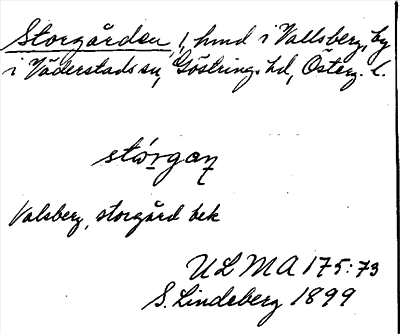 Storgården, 1, hmd i Vallsberg, by
i Väderstads sn, Göstrings hd, Österg. l.
stórgaɳ
Valsberg, storgård bek
ULMA 175:73
S. Lindeberg 1899